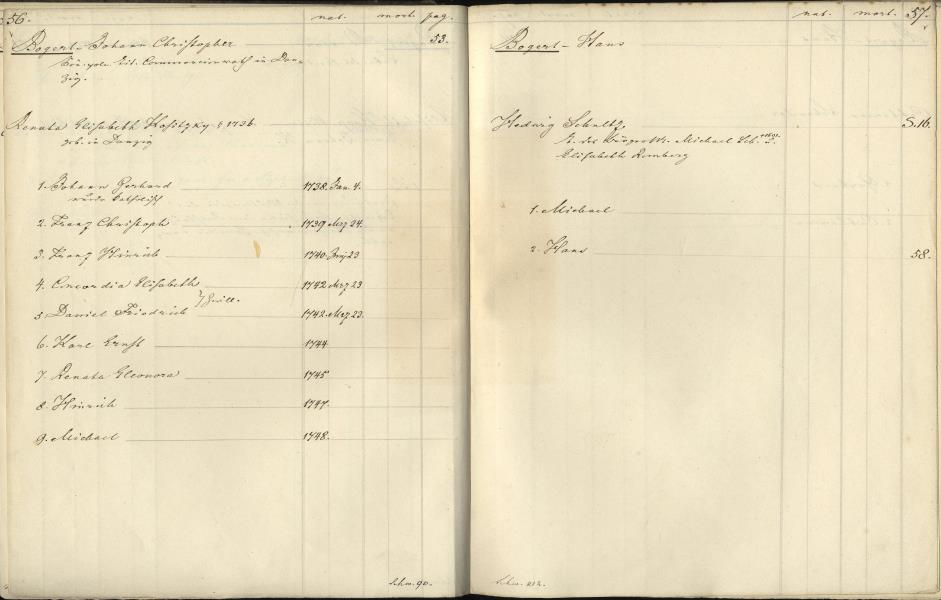 56.
nat. mort. pag.
Bogert - Johann Christopher 53.
Kön. poln. tit. Commercienrath in Dan-
zig.
Renata Elisabeth Kositzky § 1736.
geb. in Danzig
1. Johann Gerhard 1738. Jan. 4.
wurde katholisch
2. Franz Christoph 1739 Mrz 24.
3. Franz Hinrich 1740. Junj 23
4. Concordia Elisabeth 1742 Mrz 23
Zwill.
5 Daniel Friedrich 1742. Mrz 23.
6. Karl Ernst 1744
7. Renata Eleonora 1745
8. Hinrich 1747.
9. Michael 1748.
Schw. 90.
nat. mort. 57.
Bogert - Hans
Hedwig Schultz, S. 16.
T. des Michael Sch. u.
Elisabeth Romberg
1. Michael
2. Hans 58.
Schw. 212.